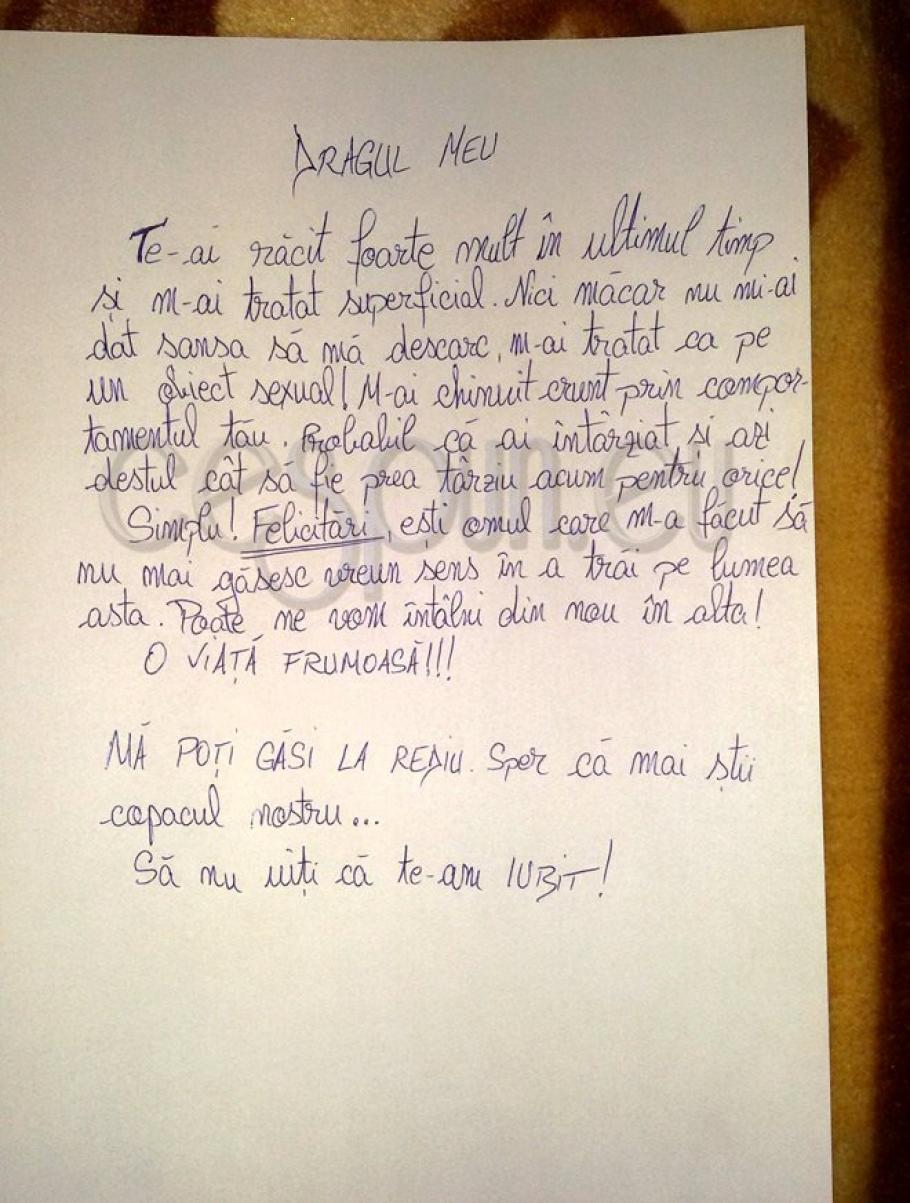 DRAGUL MEU
Te-ai răcit foarte mult în ultimul timp
și m-ai tratat superficial. Nici măcar nu mi-ai
dat sansa să mă descarc, m-ai tratat ca pe
un obiect sexual! M-ai chinuit crunt prin compor-
tamentul tău. Probabil că ai întârziat și azi
destul cât să fie prea târziu acum pentru orice!
Simplu! Felicitări, ești omul care m-a făcut să
nu mai găsesc vreun sens în a trăi pe lumea
asta. Poate ne vom întâlni din nou în alta!
O VIAȚĂ FRUMOASĂ!!!
MĂ POȚI GĂSI LA REDIU. Sper că mai știi
copacul nostru...
Să nu uiți că te-am IUBIT!
cespun.eu